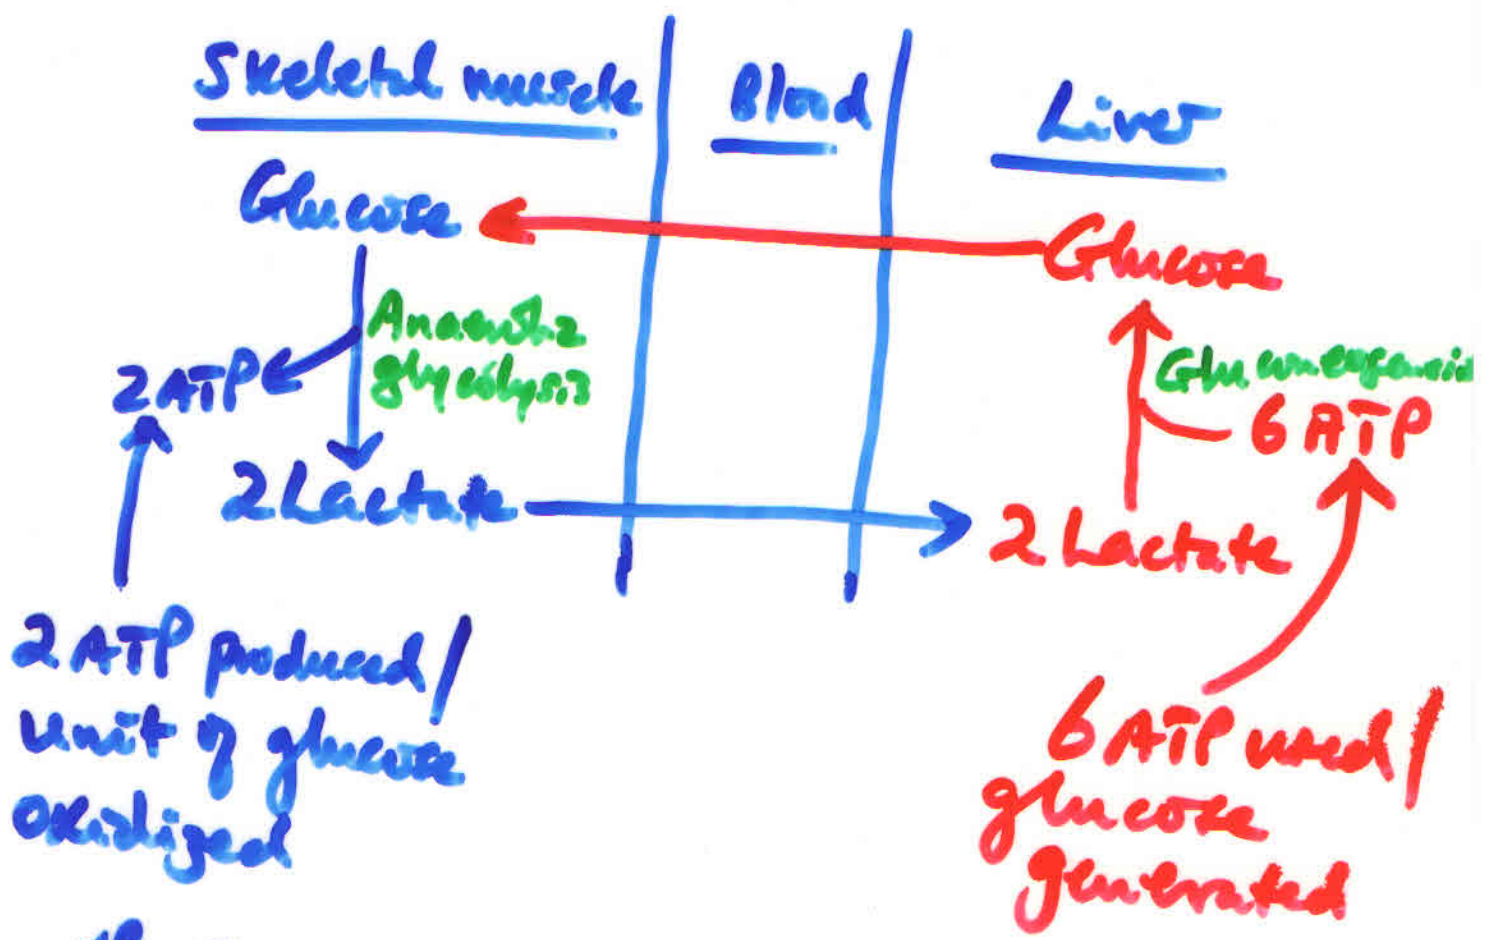 Skeletal muscle
Blood
Liver
Glucose
Glucose
Anaerobic
glycolysis
2ATP
Gluconeogenesis
6 ATP
2 Lactate
2 Lactate
2 ATP produced/
unit of glucose
oxidized
6 ATP used/
glucose
generated